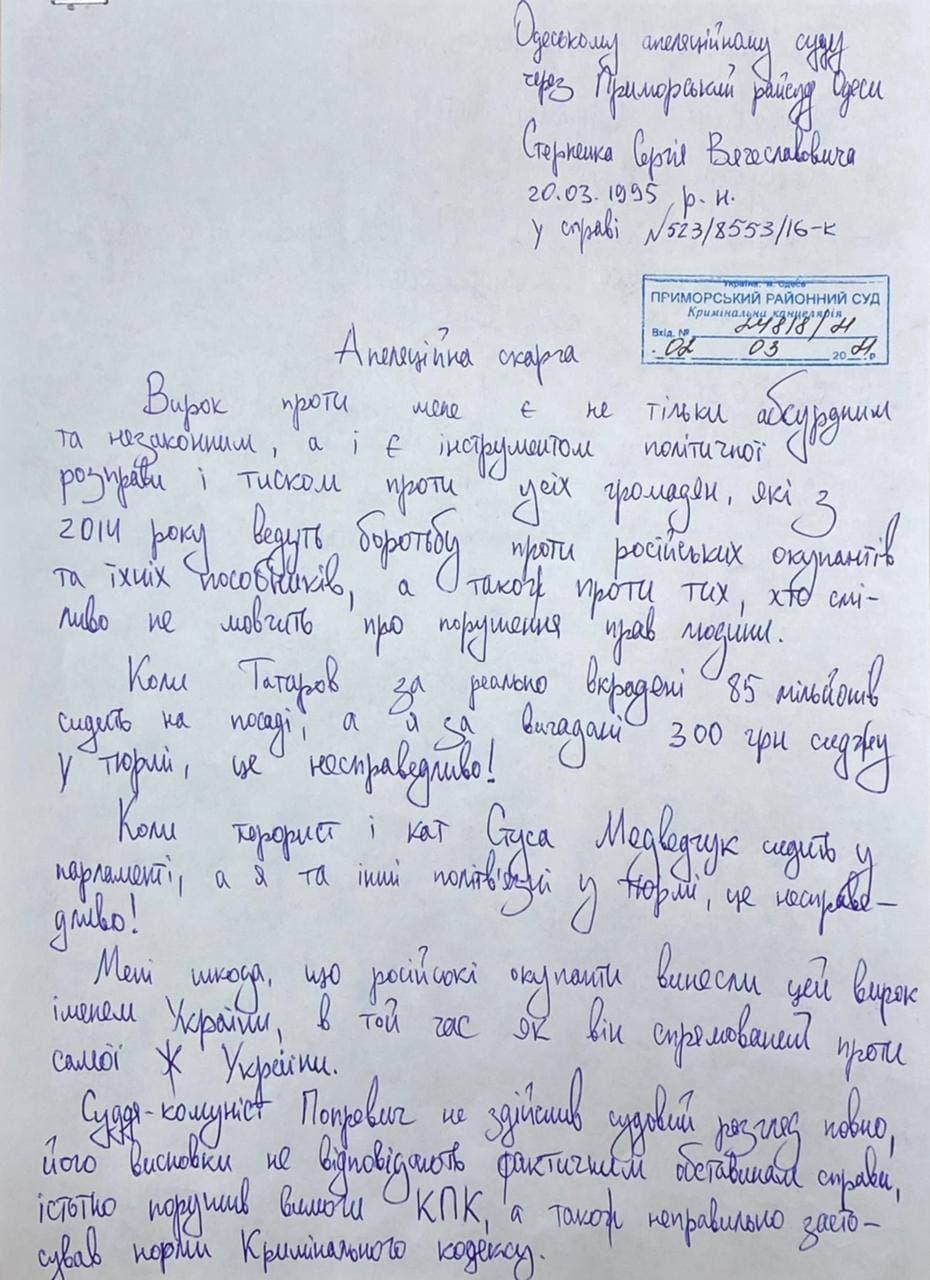 Одеському апеляційному суду
через Приморський райсуд Одеси
Стерненка Сергія Вячеславовича
20.03.1995 р.н.
у справі №523/8553/16-к
Україна, м. Одеса
ПРИМОРСЬКИЙ РАЙОННИЙ СУД
Кримінальна канцелярія
Вхід. № 24818/21
02 03 2021р
Апеляційна скарга
Вирок проти мене є не тільки абсурдним
та незаконним, а і є інструментом політичної
розправи і тиском проти усіх громадян, які з
2014 року ведуть боротьбу проти російських окупантів
та їхніх пособників, а також проти тих, хто смі-
ливо не мовчить про порушення прав людини.
Коли Татаров за реально вкрадені 85 мільйонів
сидить на посаді, а я за вигадані 300 грн сиджу
у тюрмі, це несправедливо!
Коли терорист і кат Стуса Медведчук сидить у
парламенті, а я та інші політв'язні у тюрмі, це несправе-
дливо!
Мені шкода, що російські окупанти винесли цей вирок
іменем України, в той час як він спрямований проти
самої ж України.
Суддя-комуніст Попревич не здійснив судовий розгляд повно,
його висновки не відповідають фактичним обставинам справи,
істотно порушив вимоги КПК, а також неправильно засто-
сував норми Кримінального кодексу.